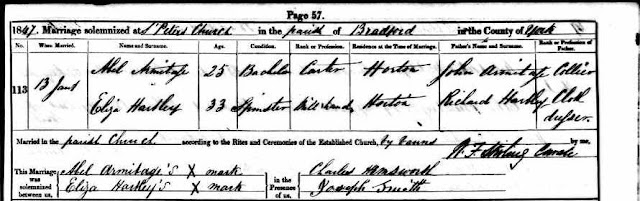 Page 57.
1847. Marriage solemnized at St Peters Church in the parish of Bradford in the County of York
No. When Married. Name and Surname. Age. Condition. Rank or Profession. Residence at the Time of Marriage. Father's Name and Surname. Rank or Profession of Father.
113 13 Jany Abel Armitage 25 Bachelor Carter Horton John Armitage Collier
Eliza Hartley 33 Spinster Mill hand Horton Richard Hartley Cloth
dresser.
Married in the parish Church according to the Rites and Ceremonies of the Established Church, by banns by me,
This Marriage was solemnized between us, Abel Armitage's X mark in the Presence of us, Charles Hemsworth W. F. Curate
Eliza Hartley's X mark Joseph Smith